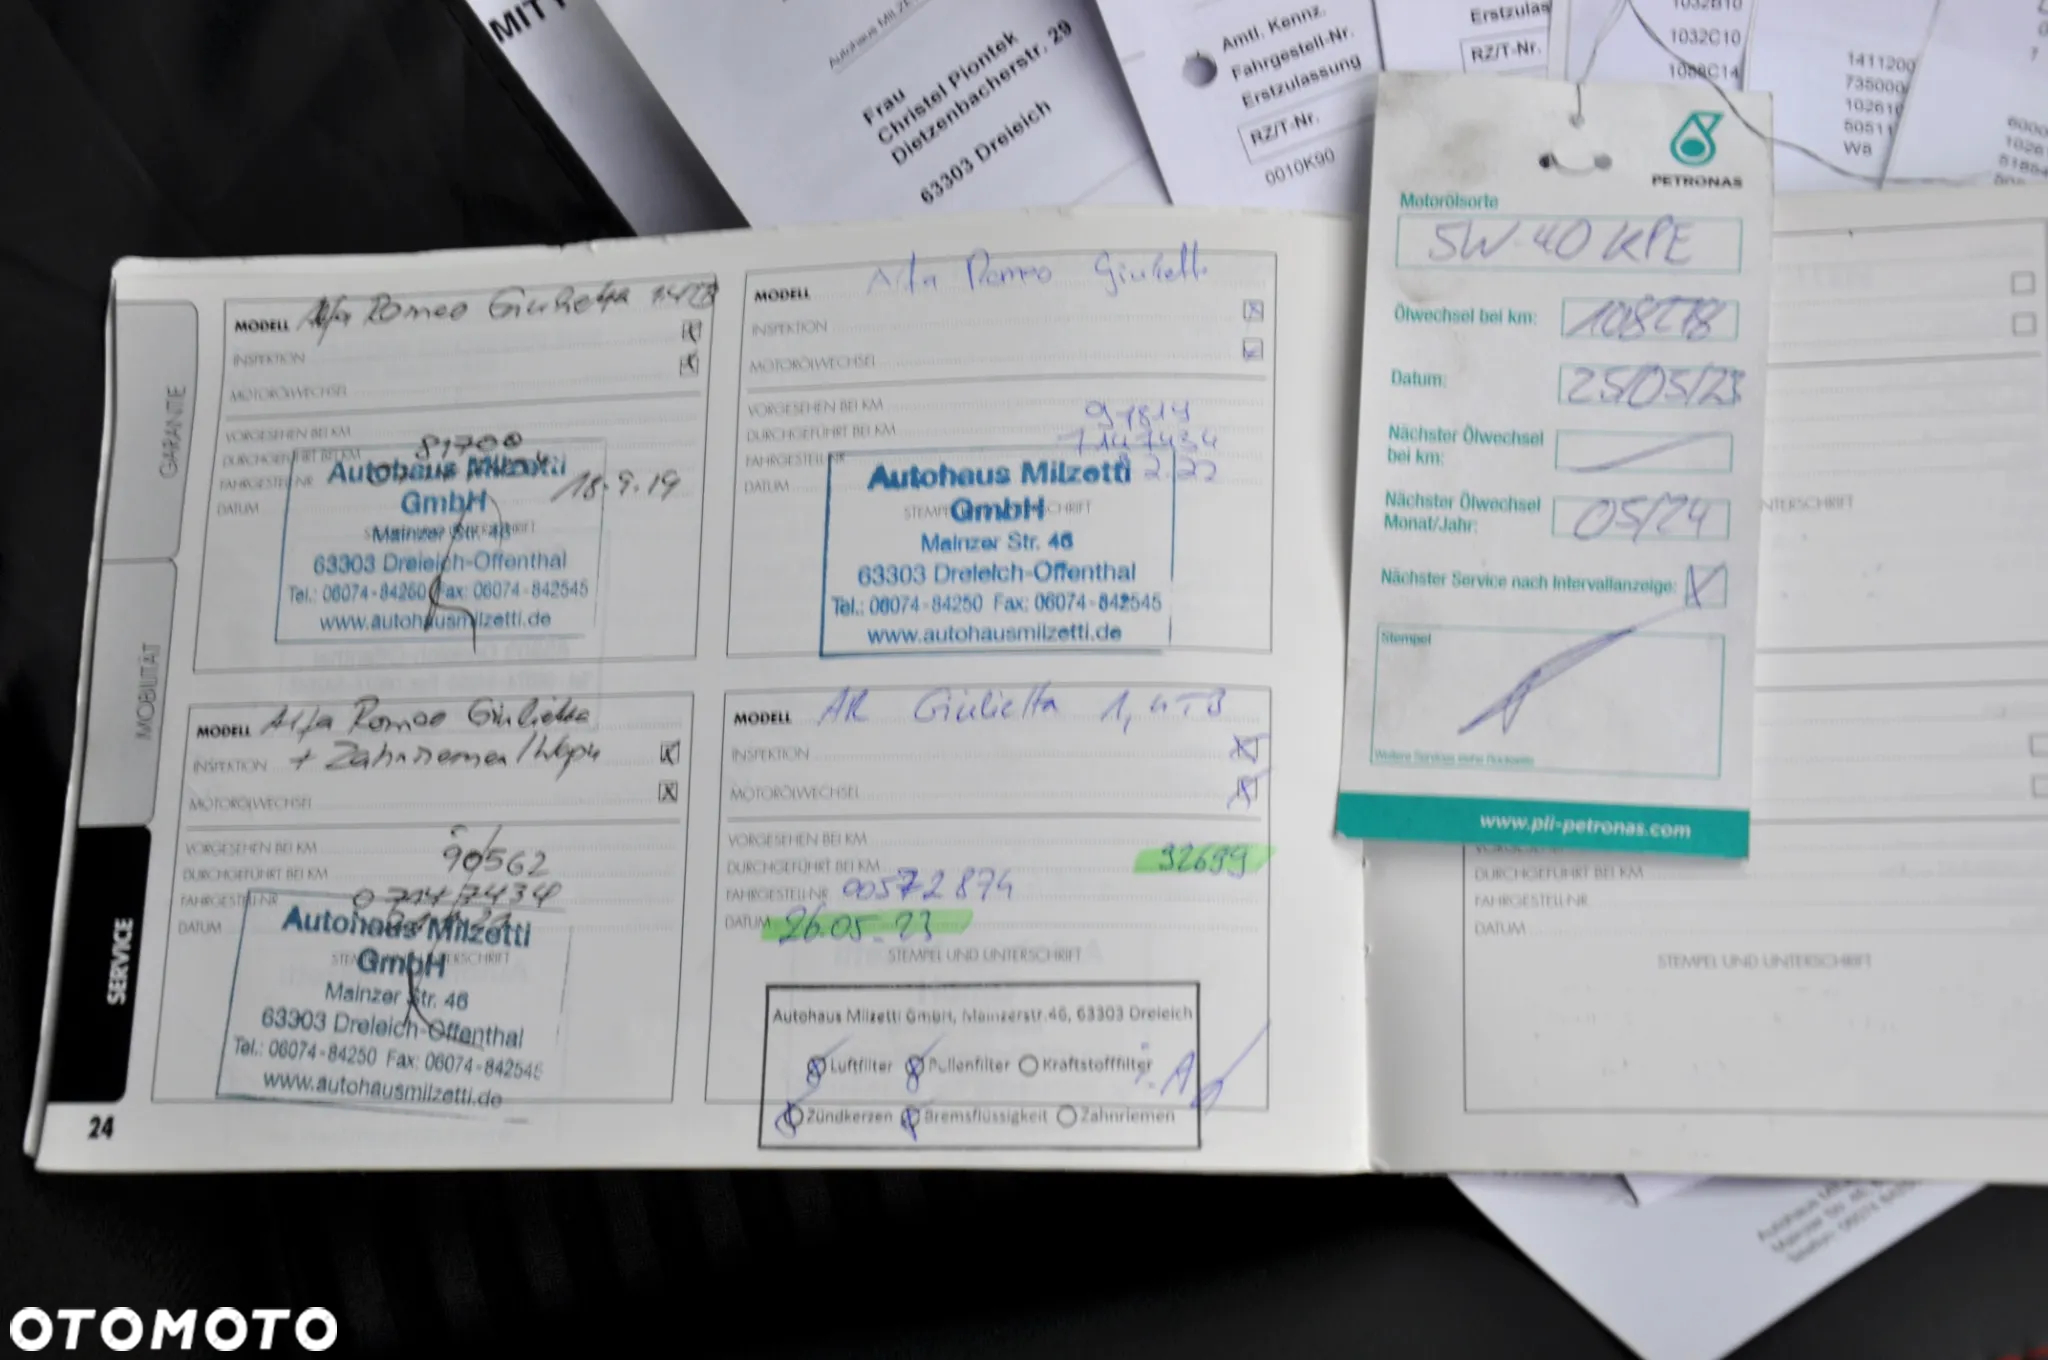 MITT
Autohaus MILZE
Frau
Christel Piontek
Dietzenbacherstr. 29
63303 Dreieich
Amtl. Kennz.
Fahrgestell-Nr.
Erstzulassung
RZ/T-Nr.
0010K90
Erstzulas
RZ/T-Nr.
1032B10
1032C10
1088C14
1411200
735000
10261
50511
W8
GARANTIE
MOBILITÄT
SERVICE
MODELL Alfa Romeo Giulietta 1.4TB
INSPEKTION
MOTORÖLWECHSEL
VORGESEHEN BEI KM
DURCHGEFÜHRT BEI KM 81700
FAHRGESTELL-NR.
DATUM 18.9.19
Autohaus Milzetti
GmbH
Mainzer Str. 46
63303 Dreieich-Offenthal
Tel.: 06074-84250 Fax: 06074-842545
www.autohausmilzetti.de
MODELL Alfa Romeo Giulietta
INSPEKTION
MOTORÖLWECHSEL
VORGESEHEN BEI KM
DURCHGEFÜHRT BEI KM 91814
FAHRGESTELL-NR. 7147434
DATUM 2.22
STEMPEL UND UNTERSCHRIFT
Autohaus Milzetti
GmbH
Mainzer Str. 46
63303 Dreieich-Offenthal
Tel.: 06074-84250 Fax: 06074-842545
www.autohausmilzetti.de
MODELL Alfa Romeo Giulietta
INSPEKTION + Zahnriemen/Wapu
MOTORÖLWECHSEL
VORGESEHEN BEI KM
DURCHGEFÜHRT BEI KM 90562
FAHRGESTELL-NR. 07147434
DATUM
STEMPEL UND UNTERSCHRIFT
Autohaus Milzetti
GmbH
Mainzer Str. 46
63303 Dreieich-Offenthal
Tel.: 06074-84250 Fax: 06074-842545
www.autohausmilzetti.de
MODELL AR Giulietta 1,4TB
INSPEKTION
MOTORÖLWECHSEL
VORGESEHEN BEI KM
DURCHGEFÜHRT BEI KM 92699
FAHRGESTELL-NR. 00572874
DATUM 26.05.23
STEMPEL UND UNTERSCHRIFT
Autohaus Milzetti GmbH, Mainzerstr.46, 63303 Dreieich
Luftfilter Pollenfilter Kraftstofffilter
Zündkerzen Bremsflüssigkeit Zahnriemen
i.A.
24
PETRONAS
Motorölsorte
5W-40 KPE
Ölwechsel bei km:
Datum: 25/05/23
Nächster Ölwechsel
bei km:
Nächster Ölwechsel
Monat/Jahr: 05/24
Nächster Service nach Intervallanzeige: X
Stempel
Weitere Services siehe Rückseite
www.pli-petronas.com
UNTERSCHRIFT
VORGESEHEN BEI KM
DURCHGEFÜHRT BEI KM
FAHRGESTELL-NR.
DATUM
STEMPEL UND UNTERSCHRIFT
OTOMOTO